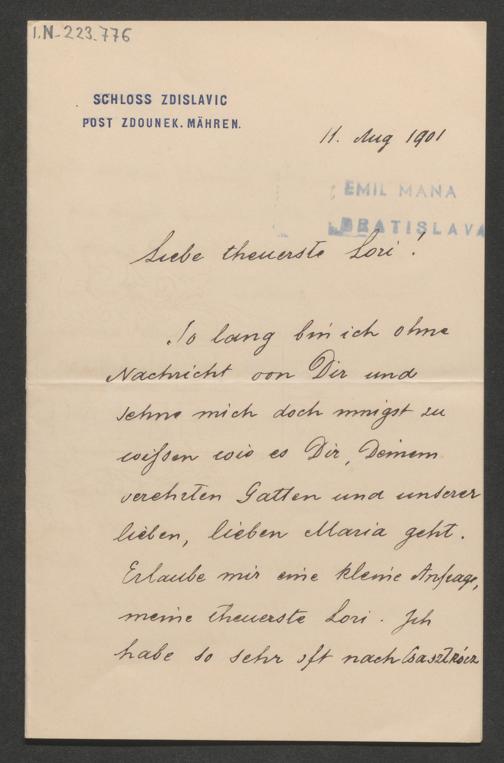 I.N. 223.776
SCHLOSS ZDISLAVIC
POST ZDOUNEK. MÄHREN.
11. Aug 1901
EMIL MANA
BRATISLAVA
Liebe theuerste Lori!
So lang bin ich ohne
Nachricht von Dir und
sehne mich doch innigst zu
wissen wie es Dir, Deinem
verehrten Gatten und unserer
lieben, lieben Maria geht.
Erlaube mir eine kleine Anfrage,
meine theuerste Lori. Ich
habe so sehr oft nach